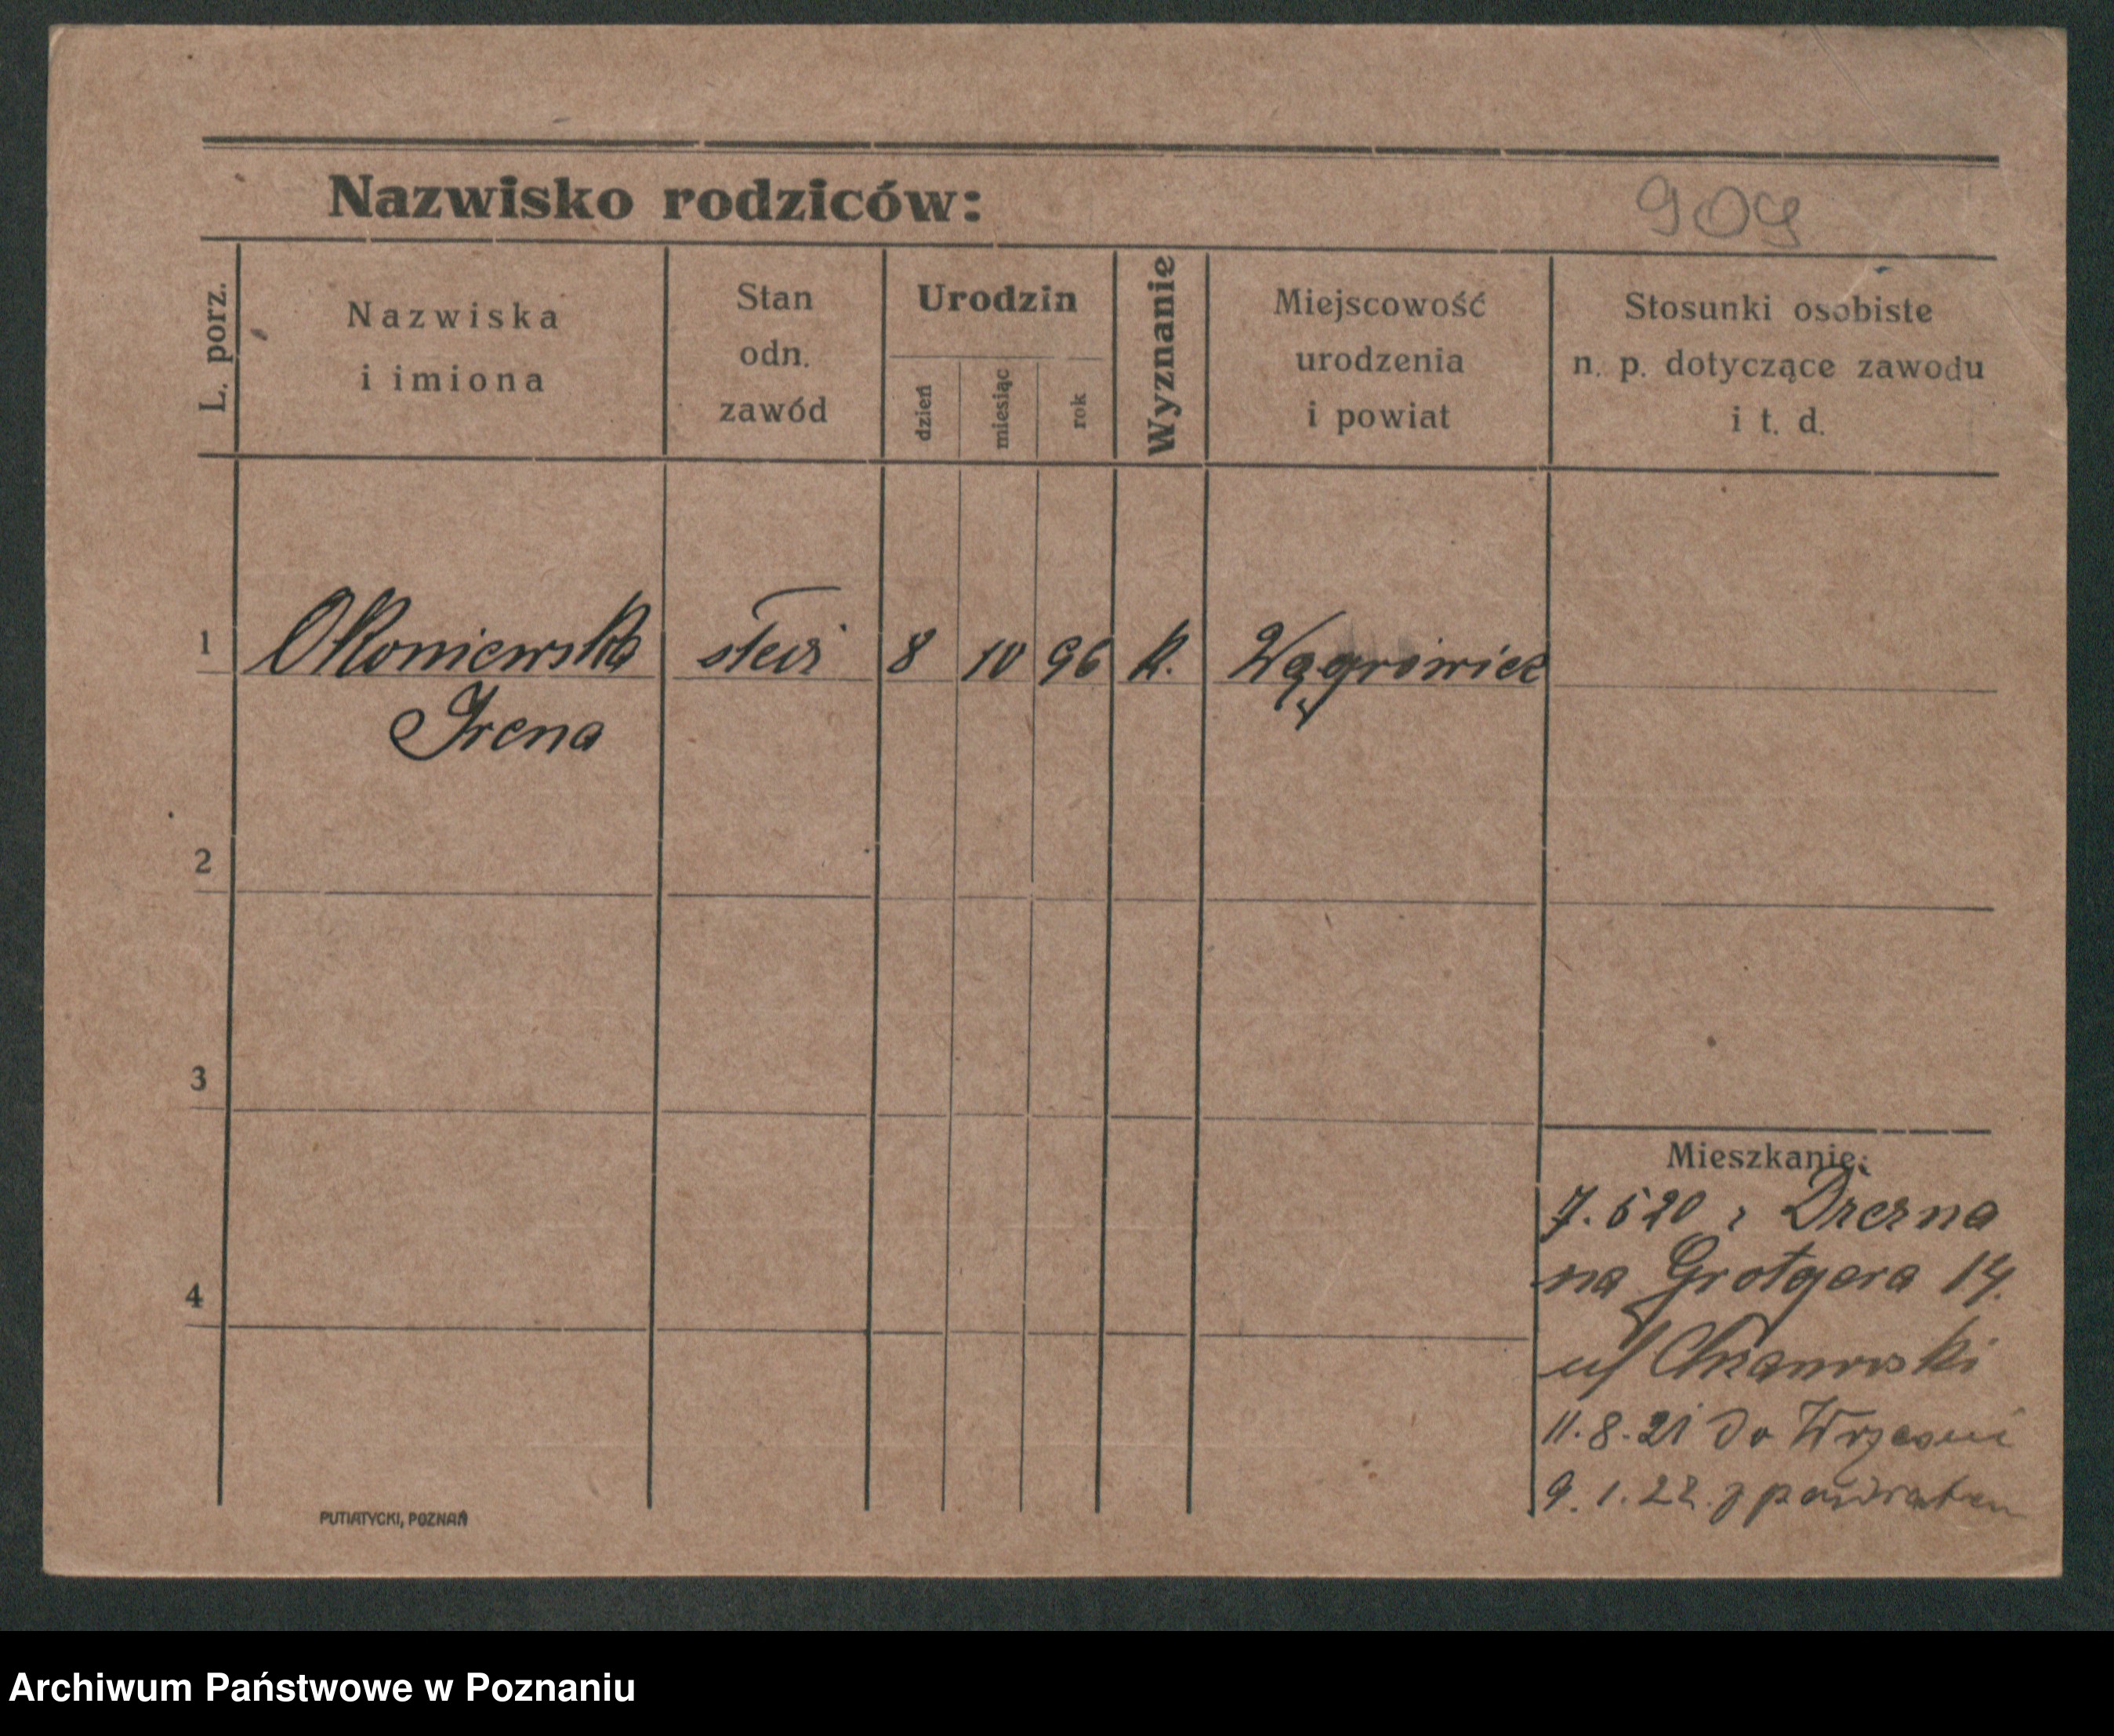 Nazwisko rodziców:
909
L. porz.
Nazwiska
i imiona
Stan
odn.
zawód
Urodzin
dzień
miesiąc
rok
Wyznanie
Miejscowość
urodzenia
i powiat
Stosunki osobiste
n. p. dotyczące zawodu
i t. d.
1 Okoniewska 8 10 96 k. Wągrówiec
Irena
2
3
4
Mieszkanie:
7. 5 20 z Drezna
na Grotgera 14.
11. 8. 21 do Wrześni
9. 1. 22. z powrotem
PUTIATYCKI, POZNAŃ
Archiwum Państwowe w Poznaniu